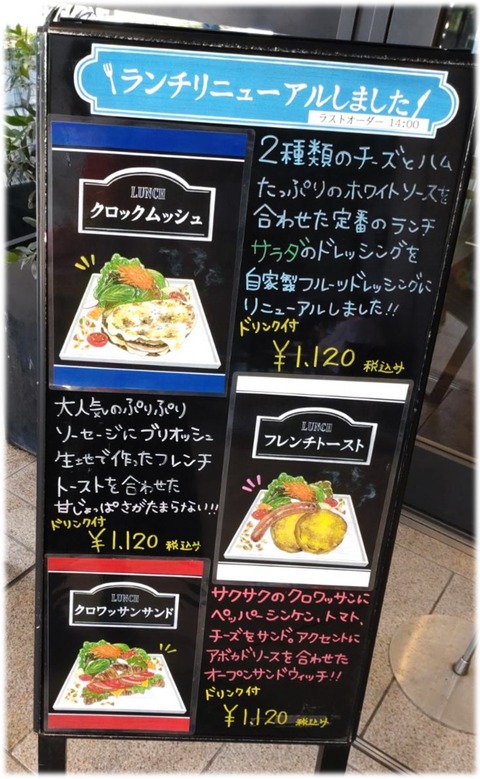 ランチリニューアルしました
ラストオーダー 14:00
LUNCH
クロックムッシュ
2種類のチーズとハム
たっぷりのホワイトソースを
合わせた定番のランチ
サラダのドレッシングを
自家製フルーツドレッシングに
リニューアルしました!!
ドリンク付
¥1.120 税込み
大人気のぷりぷり
ソーセージにブリオッシュ
生地で作ったフレンチ
トーストを合わせた
甘じょっぱさがたまらない!!
ドリンク付
¥1.120 税込み
LUNCH
フレンチトースト
LUNCH
クロワッサンサンド
サクサクのクロワッサンに
ペッパーシンケン、トマト、
チーズをサンド。アクセントに
アボカドソースを合わせた
オープンサンドウィッチ!!
ドリンク付
¥1.120 税込み